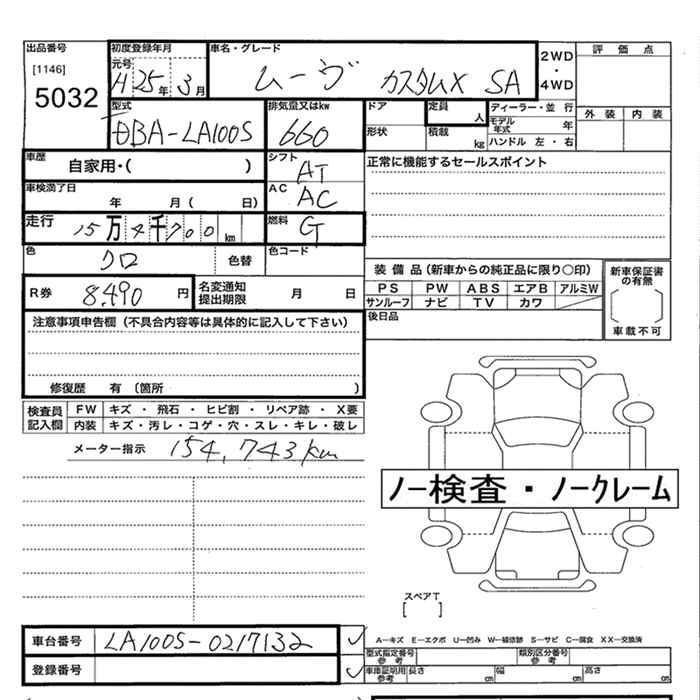 出品番号 初度登録年月 車名・グレード 2WD 評価点
[1146] 元号 ・
5032 H 25年 3月 ムーヴ カスタムX SA 4WD
型式 排気量又はkw ドア 定員 ディーラー・並行 外装 内装
DBA-LA100S 660 人 モデル年式 年
形状 積載 kg ハンドル 左・右
車歴 自家用・( ) シフト AT 正常に機能するセールスポイント
車検満了日 年 月( 日) AC AC
走行 15万4千700km 燃料 G
色 クロ 色替 色コード
装備品(新車からの純正品に限り○印) 新車保証書の有無
R券 8,490円 名変通知提出期限 月 日 PS PW ABS エアB アルミW [ ]
サンルーフ ナビ TV カワ 車載不可
注意事項申告欄(不具合内容等は具体的に記入して下さい) 後日品
修復歴 有(箇所 )
検査員記入欄 FW キズ・飛石・ヒビ割・リペア跡・X要
内装 キズ・汚レ・コゲ・穴・スレ・キレ・破レ
メーター指示 154,743km
ノー検査・ノークレーム
スペアT
[ ]
車台番号 LA100S-0217132 A―キズ E―エクボ U―凹み W―補修跡 S―サビ C―腐食 XX―交換済
型式指定番号 参考 類別区分番号 参考
登録番号 車庫証明用 参考 長さ cm 幅 cm 高さ cm